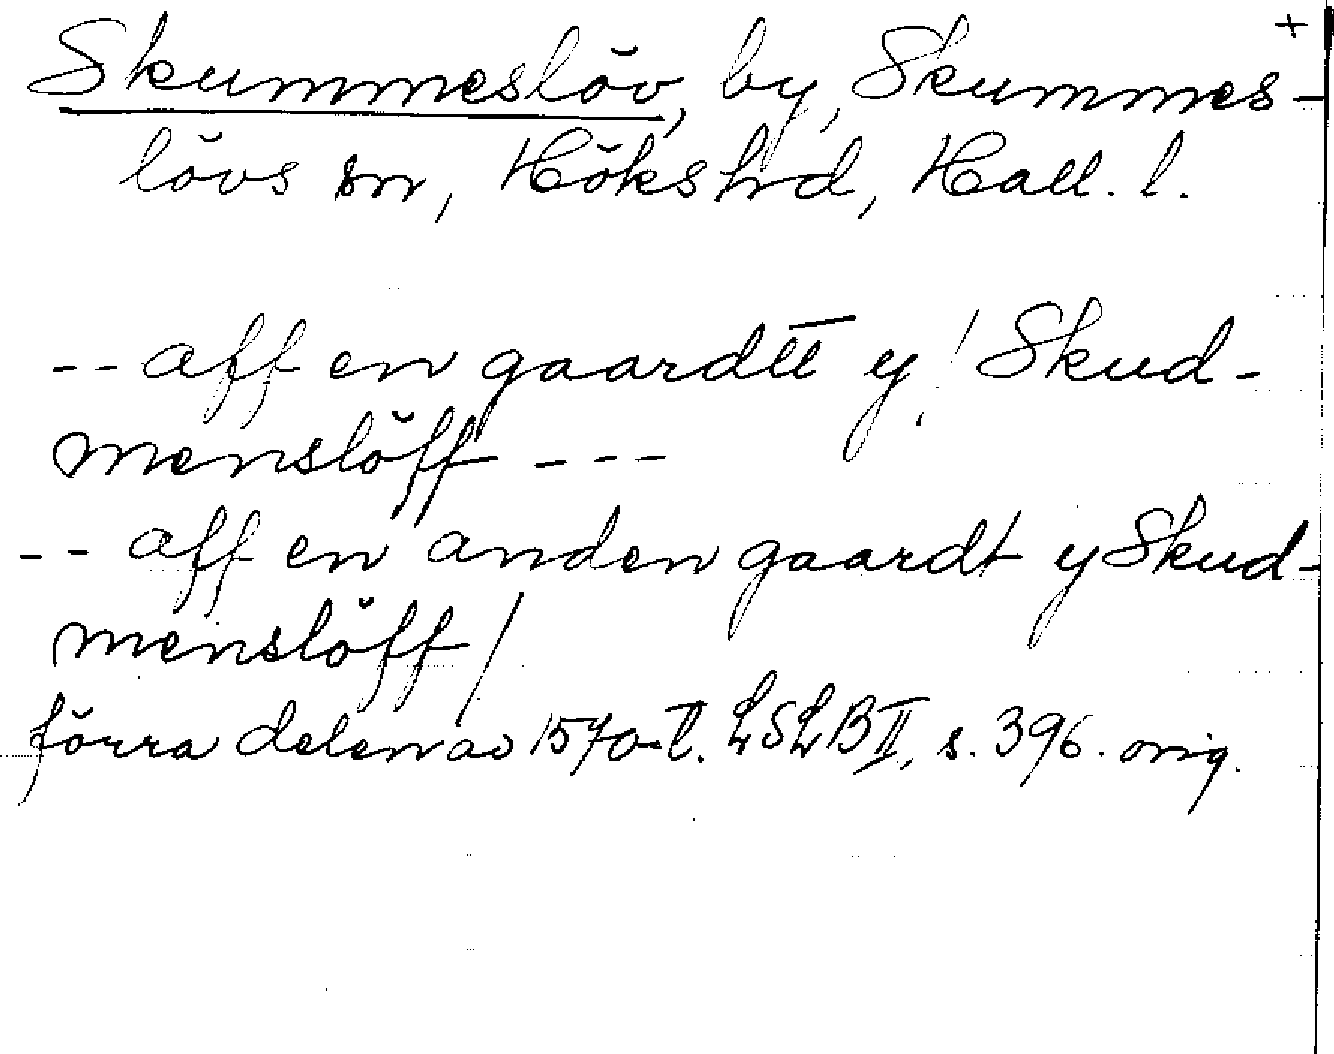 +
Skummeslöv, by, Skummes-
lövs sn, Höks hrd, Hall. l.
-- aff en gaardtt y! Skud-
menslöff ---
-- aff en anden gaardt y Skud-
menslöff /
förra delen av 1570-t. LSLB II, s. 396. orig.